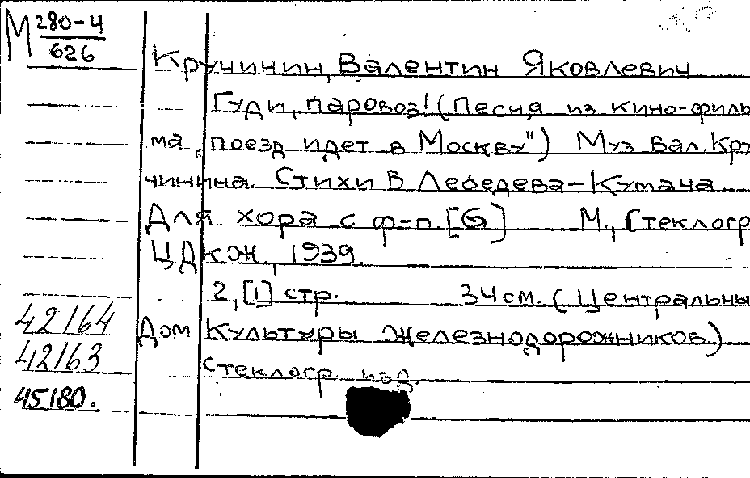 М 280-4
626
Кручинин, Валентин Яковлевич
Гуди, паровоз! (Песня из кино-филь
ма „поезд идет в Москву") Муз Вал. Кру
чинина. Стихи В Лебедева-Кумача
Для хора с ф-п. [G] М., [стеклогр
ЦДКЖ, 1939.
2, [1] стр. 34 см. (Центральны
42164
Дом Культуры железнодорожников)
42163
стеклогр. изд.
45180.